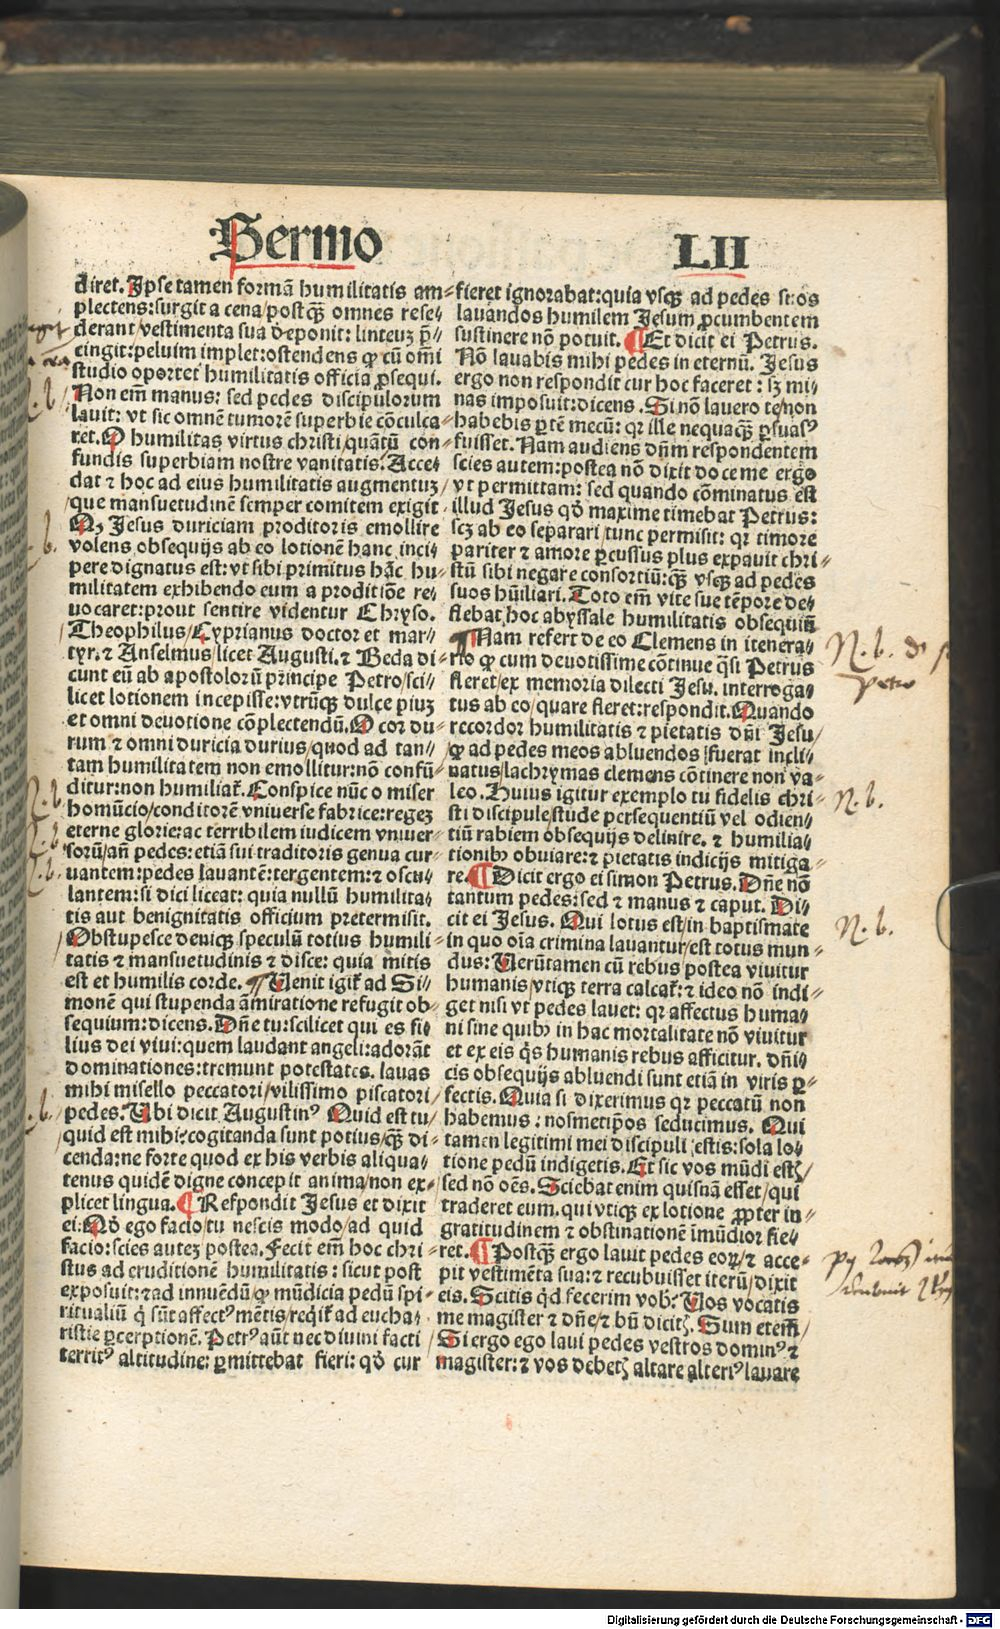 Sermo LII
diret. Ipse tamen formã humilitatis am⸗
plectens: surgit a cena/ postq̃ȝ omnes rese⸗
derant/ vestimenta sua deponit: linteuȝ p̄⸗
cingit: peluim implet: ostendens ꝙ cũ om̃i
studio oportet humilitatis officia ꝓsequi.
Non em̃ manus: sed pedes discipulorum
lauit: vt sic omnẽ tumorẽ superbie cõculca⸗
ret. O humilitas virtus christi/ quãtũ con⸗
fundis superbiam nostre vanitatis. Acce⸗
dat ⁊ hoc ad eius humilitatis augmentuȝ/
que mansuetudinẽ semper comitem exigit
Qȝ Jesus duriciam proditoris emollire
volens obsequijs ab eo lotionẽ hanc inci⸗
pere dignatus est: vt sibi primitus hãc hu⸗
militatem exhibendo eum a proditiõe re⸗
uocaret: prout sentire videntur Chryso.
Theophilus/ Cyprianus doctor et mar⸗
tyr. ⁊ Anselmus/ licet Augusti. ⁊ Beda di⸗
cunt eũ ab apostolorũ principe Petro/ sci⸗
licet lotionem incepisse: vtrũqȝ dulce piuȝ
et omni deuotione cõplectendũ. O cor du⸗
rum ⁊ omni duricia durius/ quod ad tan⸗
tam humilitatem non emollitur: nõ confũ⸗
ditur: non humiliaꝉ. Conspice nũc o miser
homũcio/ conditorẽ vniuerse fabrice: regeȝ
eterne glorie: ac terribilem iudicem vniuer⸗
sorũ/ añ pedes: etiã sui traditoris genua cur⸗
uantem: pedes lauantẽ: tergentem: ⁊ oscu⸗
lantem: si dici liceat: quia nullũ humilita⸗
tis aut benignitatis officium pretermisit.
Obstupesce deniqȝ speculũ totius humili⸗
tatis ⁊ mansuetudinis ⁊ disce: quia mitis
est et humilis corde. ¶ Uenit igiꝉ ad Si⸗
monẽ qui stupenda ãmiratione refugit ob⸗
sequium: dicens. Dñe tu: scilicet qui es fi⸗
lius dei viui: quem laudant angeli: adorãt
dominationes: tremunt potestates. lauas
mihi misello peccatori/ vilissimo piscatori/
pedes. Ubi dicit Augustinꝰ Quid est tu/
quid est mihi? cogitanda sunt potius/ q̃ȝ di⸗
cenda: ne forte quod ex his verbis aliqua⸗
tenus quidẽ digne concepit anima/ non ex⸗
plicet lingua. ¶ Respondit Jesus et dixit
ei: Qđ ego facio/ tu nescis modo/ ad quid
facio: scies auteȝ postea. Fecit em̃ hoc chri⸗
stus ad eruditionẽ humilitatis: sicut post
exposuit: ⁊ ad innuẽdũ/ ꝙ mũdicia pedũ spi⸗
ritualiũ q̇ sũt affectꝰ mẽtis/ reqꝉ ad eucha⸗
ristie ꝑceptionẽ. Petrꝰ aũt nec diuini facti
territꝰ altitudine: ꝑmittebat fieri: qđ cur
fieret ignorabat: quia vsqȝ ad pedes suos
lauandos humilem Jesum ꝓcumbentem
sustinere nõ potuit. ¶ Et dicit ei Petrus.
Nõ lauabis mihi pedes in eternũ. Jesus
ergo non respondit cur hoc faceret: sȝ mi⸗
nas imposuit: dicens. Si nõ lauero te/ non
habebis ꝑtẽ mecũ: qr ille nequaq̃ȝ ꝑsuasꝰ
fuisset. Nam audiens dñm respondentem
scies autem: postea nõ dixit doce me ergo
vt permittam: sed quando cõminatus est
illud Jesus qđ maxime timebat Petrus:
scȝ ab eo separari/ tunc permisit: qr timore
pariter ⁊ amore ꝑcussus plus expauit chri⸗
stũ sibi negare consortiũ: q̃ȝ vsqȝ ad pedes
suos hũiliari. Toto em̃ vite sue tẽpore de⸗
flebat hoc abyssale humilitatis obsequiũ
¶ Nam refert de eo Clemens in itenera⸗
rio ꝙ cum deuotissime cõtinue q̃si Petrus
fleret/ ex memoria dilecti Jesu. interroga⸗
tus ab eo/ quare fleret: respondit. Quando
recordor humilitatis ⁊ pietatis dñi Jesu/
ꝙ ad pedes meos abluendos fuerat incli⸗
natus/ lachrymas clemens cõtinere non va⸗
leo. Huius igitur exemplo tu fidelis chri⸗
sti discipule/ stude persequentiũ vel odien⸗
tiũ rabiem obsequijs delinire. ⁊ humilia⸗
tionibꝰ obuiare: ⁊ pietatis indicijs mitiga⸗
re. ¶ Dicit ergo ei simon Petrus. Dñe nõ
tantum pedes: sed ⁊ manus ⁊ caput. Di⸗
cit ei Jesus. Qui lotus est/ in baptismate
in quo oĩa crimina lauantur/ est totus mun⸗
dus: Uerũtamen cũ rebus postea viuitur
humanis/ vtiqȝ terra calcaꝉ: ⁊ ideo nõ indi⸗
get nisi vt pedes lauet: qr affectus huma⸗
ni sine quibꝰ in hac mortalitate nõ viuitur
et ex eis q̇s humanis rebus afficitur. dñi⸗
cis obsequijs abluendi sunt etiã in viris ꝑ⸗
fectis. Quia si dixerimus qr peccatũ non
habemus: nosmetip̃os seducimus. Qui
tamen legitimi mei discipuli estis: sola lo⸗
tione pedũ indigetis. Et sic vos mũdi estꝭ/
sed nõ oẽs. Sciebat enim quisnã esset/ qui
traderet eum. qui vtiqȝ ex lotione ꝓpter in⸗
gratitudinem ⁊ obstinationẽ ĩmũdior fie⸗
ret. ¶ Postq̃ȝ ergo lauit pedes eoꝝ/ ⁊ acce⸗
pit vestimẽta sua: ⁊ recubuisset iterũ/ dixit
eis. Scitis q̇d fecerim vob̃: Uos vocatis
me magister ⁊ dñe/ ⁊ bñ dicitꝭ. Sum etem̃/
Si ergo ego laui pedes vestros dominꝰ ⁊
magister: ⁊ vos debetꝭ altare alteriꝰ lauare
N. b.
N. b.
N. b.
N. b. petro
N. b.
N. b.
Digitalisierung gefördert durch die Deutsche Forschungsgemeinschaft - DFG